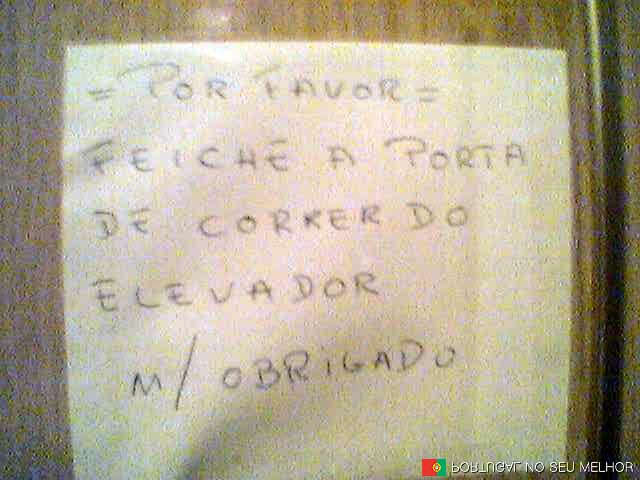 = POR FAVOR =
FEICHE A PORTA
DE CORRER DO
ELEVADOR
M/ OBRIGADO
PORTUGAL NO SEU MELHOR